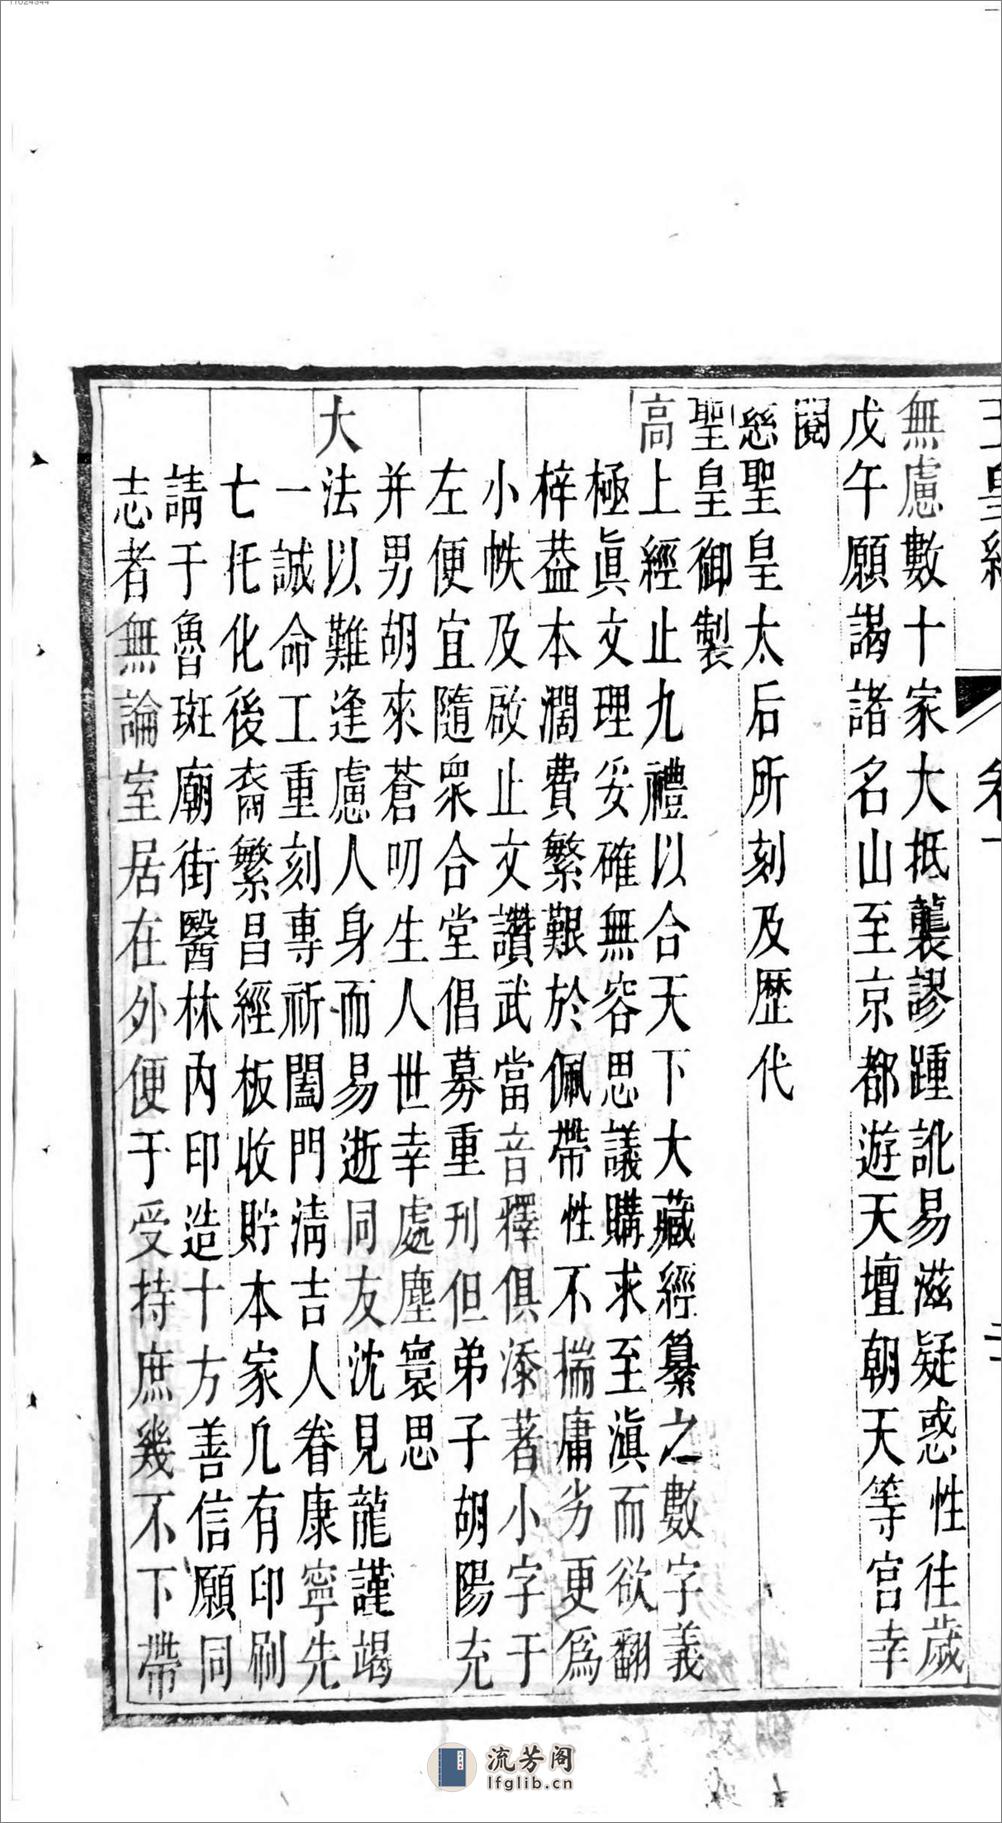 無慮數十家大抵襲謬踵訛易滋疑惑性往歲
戊午願謁諸名山至京都遊天壇朝天等宮幸
閱
慈聖皇太后所刻及歷代
聖皇御製
高上經止九禮以合天下大藏經纂之數字義
極眞文理妥確無容思議購求至滇而欲翻
梓葢本濶費繁艱於佩帶性不揣庸劣更爲
小帙及啟止文讚武當音釋俱添著小字于
左便宜隨衆合堂倡募重刊但弟子胡陽充
并男胡來蒼叨生人世幸處塵寰思
大法以難逢慮人身而易逝同友沈見龍謹竭
一誠命工重刻專祈闔門淸吉人眷康寧先
七托化後裔繁昌經板收貯本家凢有印刷
請于魯斑廟街醫林內印造十方善信願同
志者無論室居在外便于受持庶幾不下帶
流芳阁
lfglib.cn